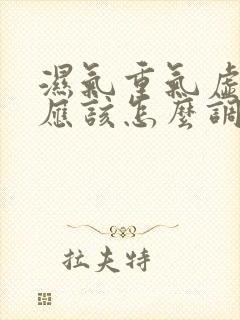 濕氣重氣虛
應該怎麼調
拉夫特